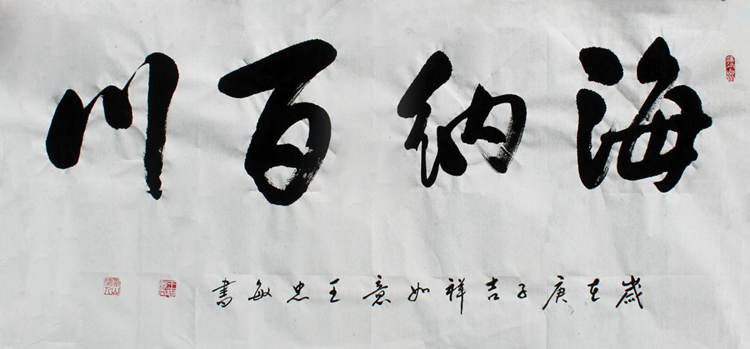 海纳百川
岁在庚子吉祥如意王忠敏书